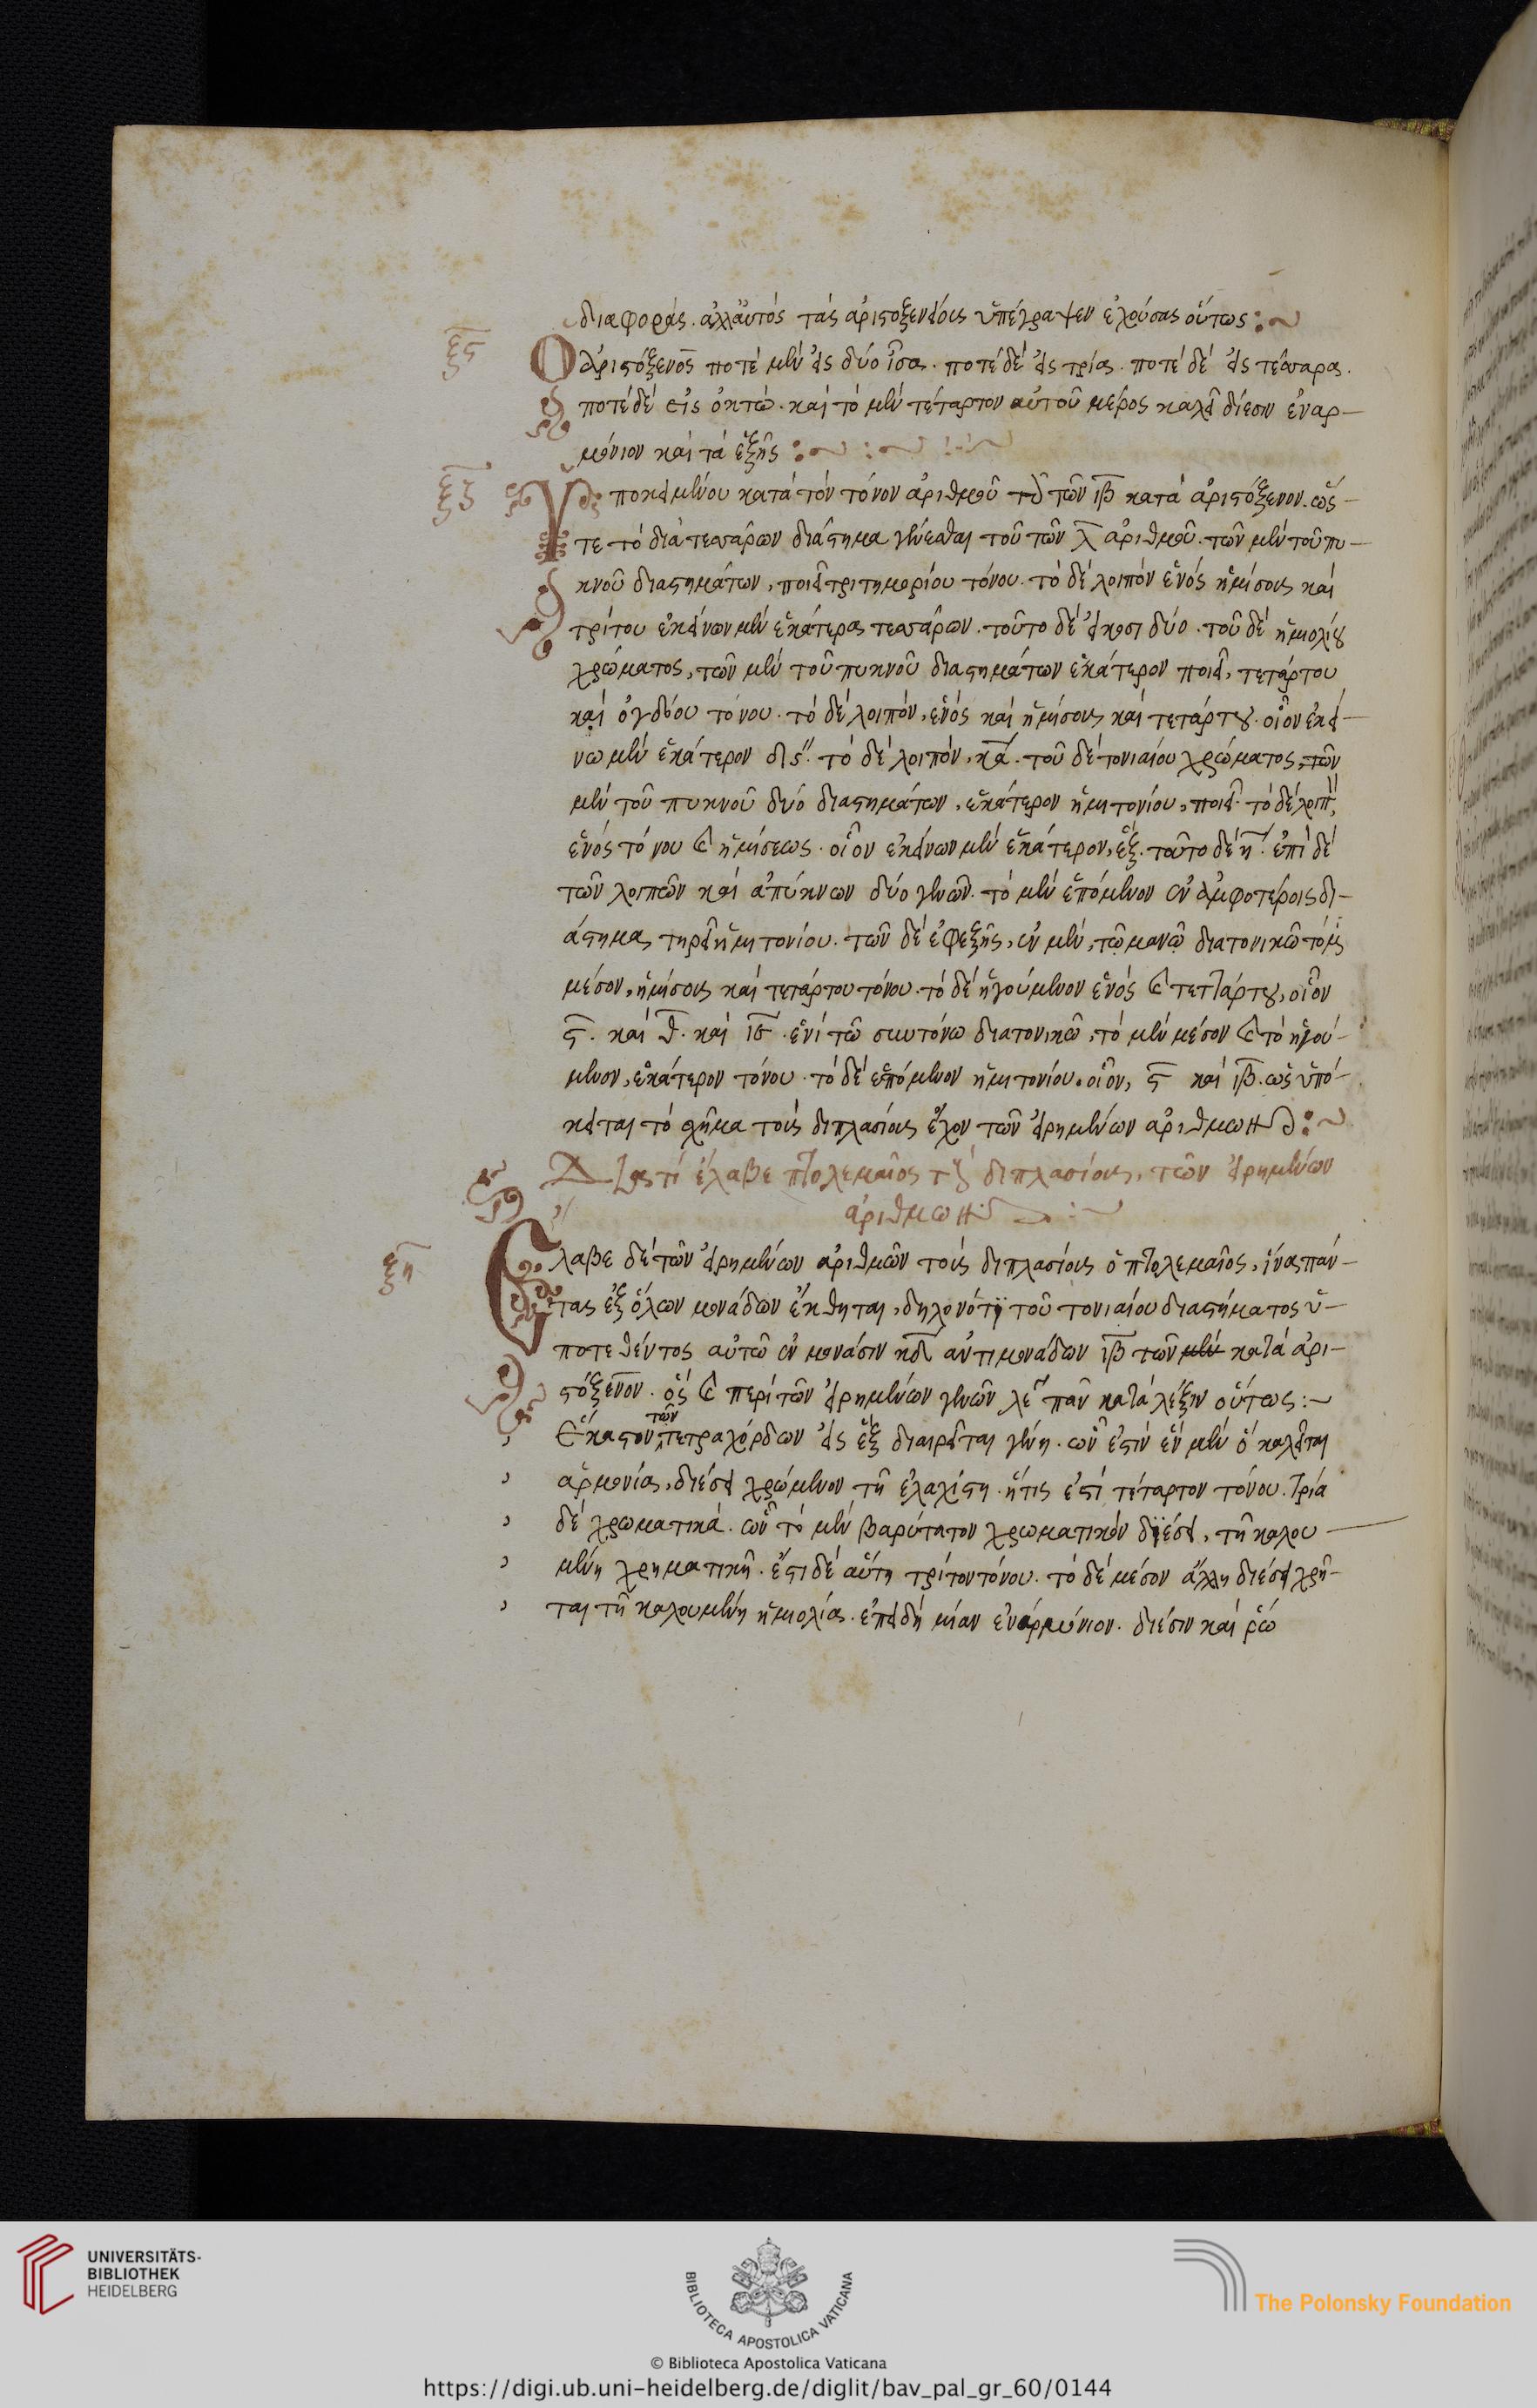 διαφοράς. αλλ' αὐτός τάς αριστοξενείοις ὑπέγραψεν ἐχούσας οὕτως :~
ξς
Ο αριστόξενος ποτέ μὲν εἰς δύο ἴσα. ποτέ δέ εἰς τρία. ποτέ δέ εἰς τέσσαρα.
ποτέ δέ εἰς ὀκτώ. καί τό μὲν τέταρτον αὐτοῦ μέρος καλεῖ δίεσιν ἐναρ-
μόνιον καί τά ἑξῆς :~ :~
ξζ
Υποκειμένου κατά τόν τόνον ἀριθμοῦ τοῦ τῶν ιβ κατά ἀριστόξενον. ὥς-
τε τό διά τεσσάρων διάστημα γίνεσθαι τοῦ τῶν λ ἀριθμοῦ. τῶν μὲν τοῦ πυ-
κνοῦ διαστημάτων, ποιεῖ τριτημορίου τόνου. τό δέ λοιπόν ἑνός ἡμίσους καί
τρίτου ἐκείνων μὲν ἑκάτερα τεσσάρων. τοῦτο δέ εἴκοσι δύο. τοῦ δέ ἡμιολίου
χρώματος, τῶν μὲν τοῦ πυκνοῦ διαστημάτων ἑκάτερον ποιεῖ, τετάρτου
καί ὀγδόου τόνου. τό δέ λοιπόν, ἑνός καί ἡμίσους καί τετάρτου. οἷον ἐκεί-
νω μὲν ἑκάτερον δ𐅵ʹʹ. τό δέ λοιπόν, κα. τοῦ δέ τονιαίου χρώματος, τῶν
μὲν τοῦ πυκνοῦ δυό διαστημάτων, ἑκάτερον ἡμιτονίου, ποιεῖ. τό δέ λοιπ
ἑνός τόνου καὶ ἡμίσεως. οἷον ἐκείνων μὲν ἑκάτερον, ἕξ. ταῦτο δέ ιη. ἐπί δέ
τῶν λοιπῶν καί ἀπύκνων δύο γενῶν. τό μὲν ἑπόμενον ἐν ἀμφοτέροις δι-
άστημα, τηρεῖ ἡμιτονίου. τῶν δέ ἐφεξῆς, ἐν μὲν, τῶ μανῶ διατονικῶ τό μὲν
μέσον, ἡμίσους καί τετάρτου τόνου. τό δέ ἡγούμενον ἑνός καὶ τετάρτου, οἷον
ς. καί θ. καί ιε. ἑνί τῶ συντόνω διατονικῶ, τό μὲν μέσον καὶ τό ἡγού-
μενον, ἑκάτερον τόνου. τό δέ ἑπόμενον ἡμιτονίου. οἷον, ς καί ιβ. ὡς ὑπό-
κειται τό σχῆμα τούς διπλασίους ἔχον τῶν εἰρημένων αριθμων :~
Διατί ἔλαβε πτολεμαῖος τοὺς διπλασίους, τῶν εἰρημένων
ἀριθμων :~
ξη
Ελαβε δέ τῶν εἰρημένων ἀριθμῶν τούς διπλασίους ὁ πτολεμαῖος, ἵνα πάν-
τας ἐξ ὅλων μονάδων ἔκθηται, δηλονότι τοῦ τονιαίου διαστήματος ὑ-
ποτεθέντος αὐτῶ ἐν μονάσιν κδ ἀντι μονάδων ιβ τῶν μὲν κατά ἀρι-
στόξενον. ὅς καὶ περί τῶν εἰρημένων γενῶν λέγει παν κατά λέξιν οὕτως :~
Ἕκαστον τῶν τετραχόρδων εἰς ἕξ διαιρεῖται γένη. ὧν ἐστίν ἕν μὲν ὅ καλεῖται
ἁρμονίας, διέσει χρώμενον τῆ ἐλαχίστη. ἥτις ἐστί τέταρτον τόνου. τρία
δέ χρωματικά. ὧν τό μὲν βαρύτατον χρωματικόν διέσει, τῆ καλου-
μένη χρηματικῆ. ἔστι δέ αὕτη τρίτον τόνου. τό δέ μέσον ἄλλη διέσει χρῆ-
ται τῆ καλουμένη ἡμιολία. ἐπειδή μίαν ἐναρμόνιον. διέσιν καί ρω
UNIVERSITÄTS-
BIBLIOTHEK
HEIDELBERG
BIBLIOTECA APOSTOLICA VATICANA
The Polonsky Foundation
© Biblioteca Apostolica Vaticana
https://digi.ub.uni-heidelberg.de/diglit/bav_pal_gr_60/0144